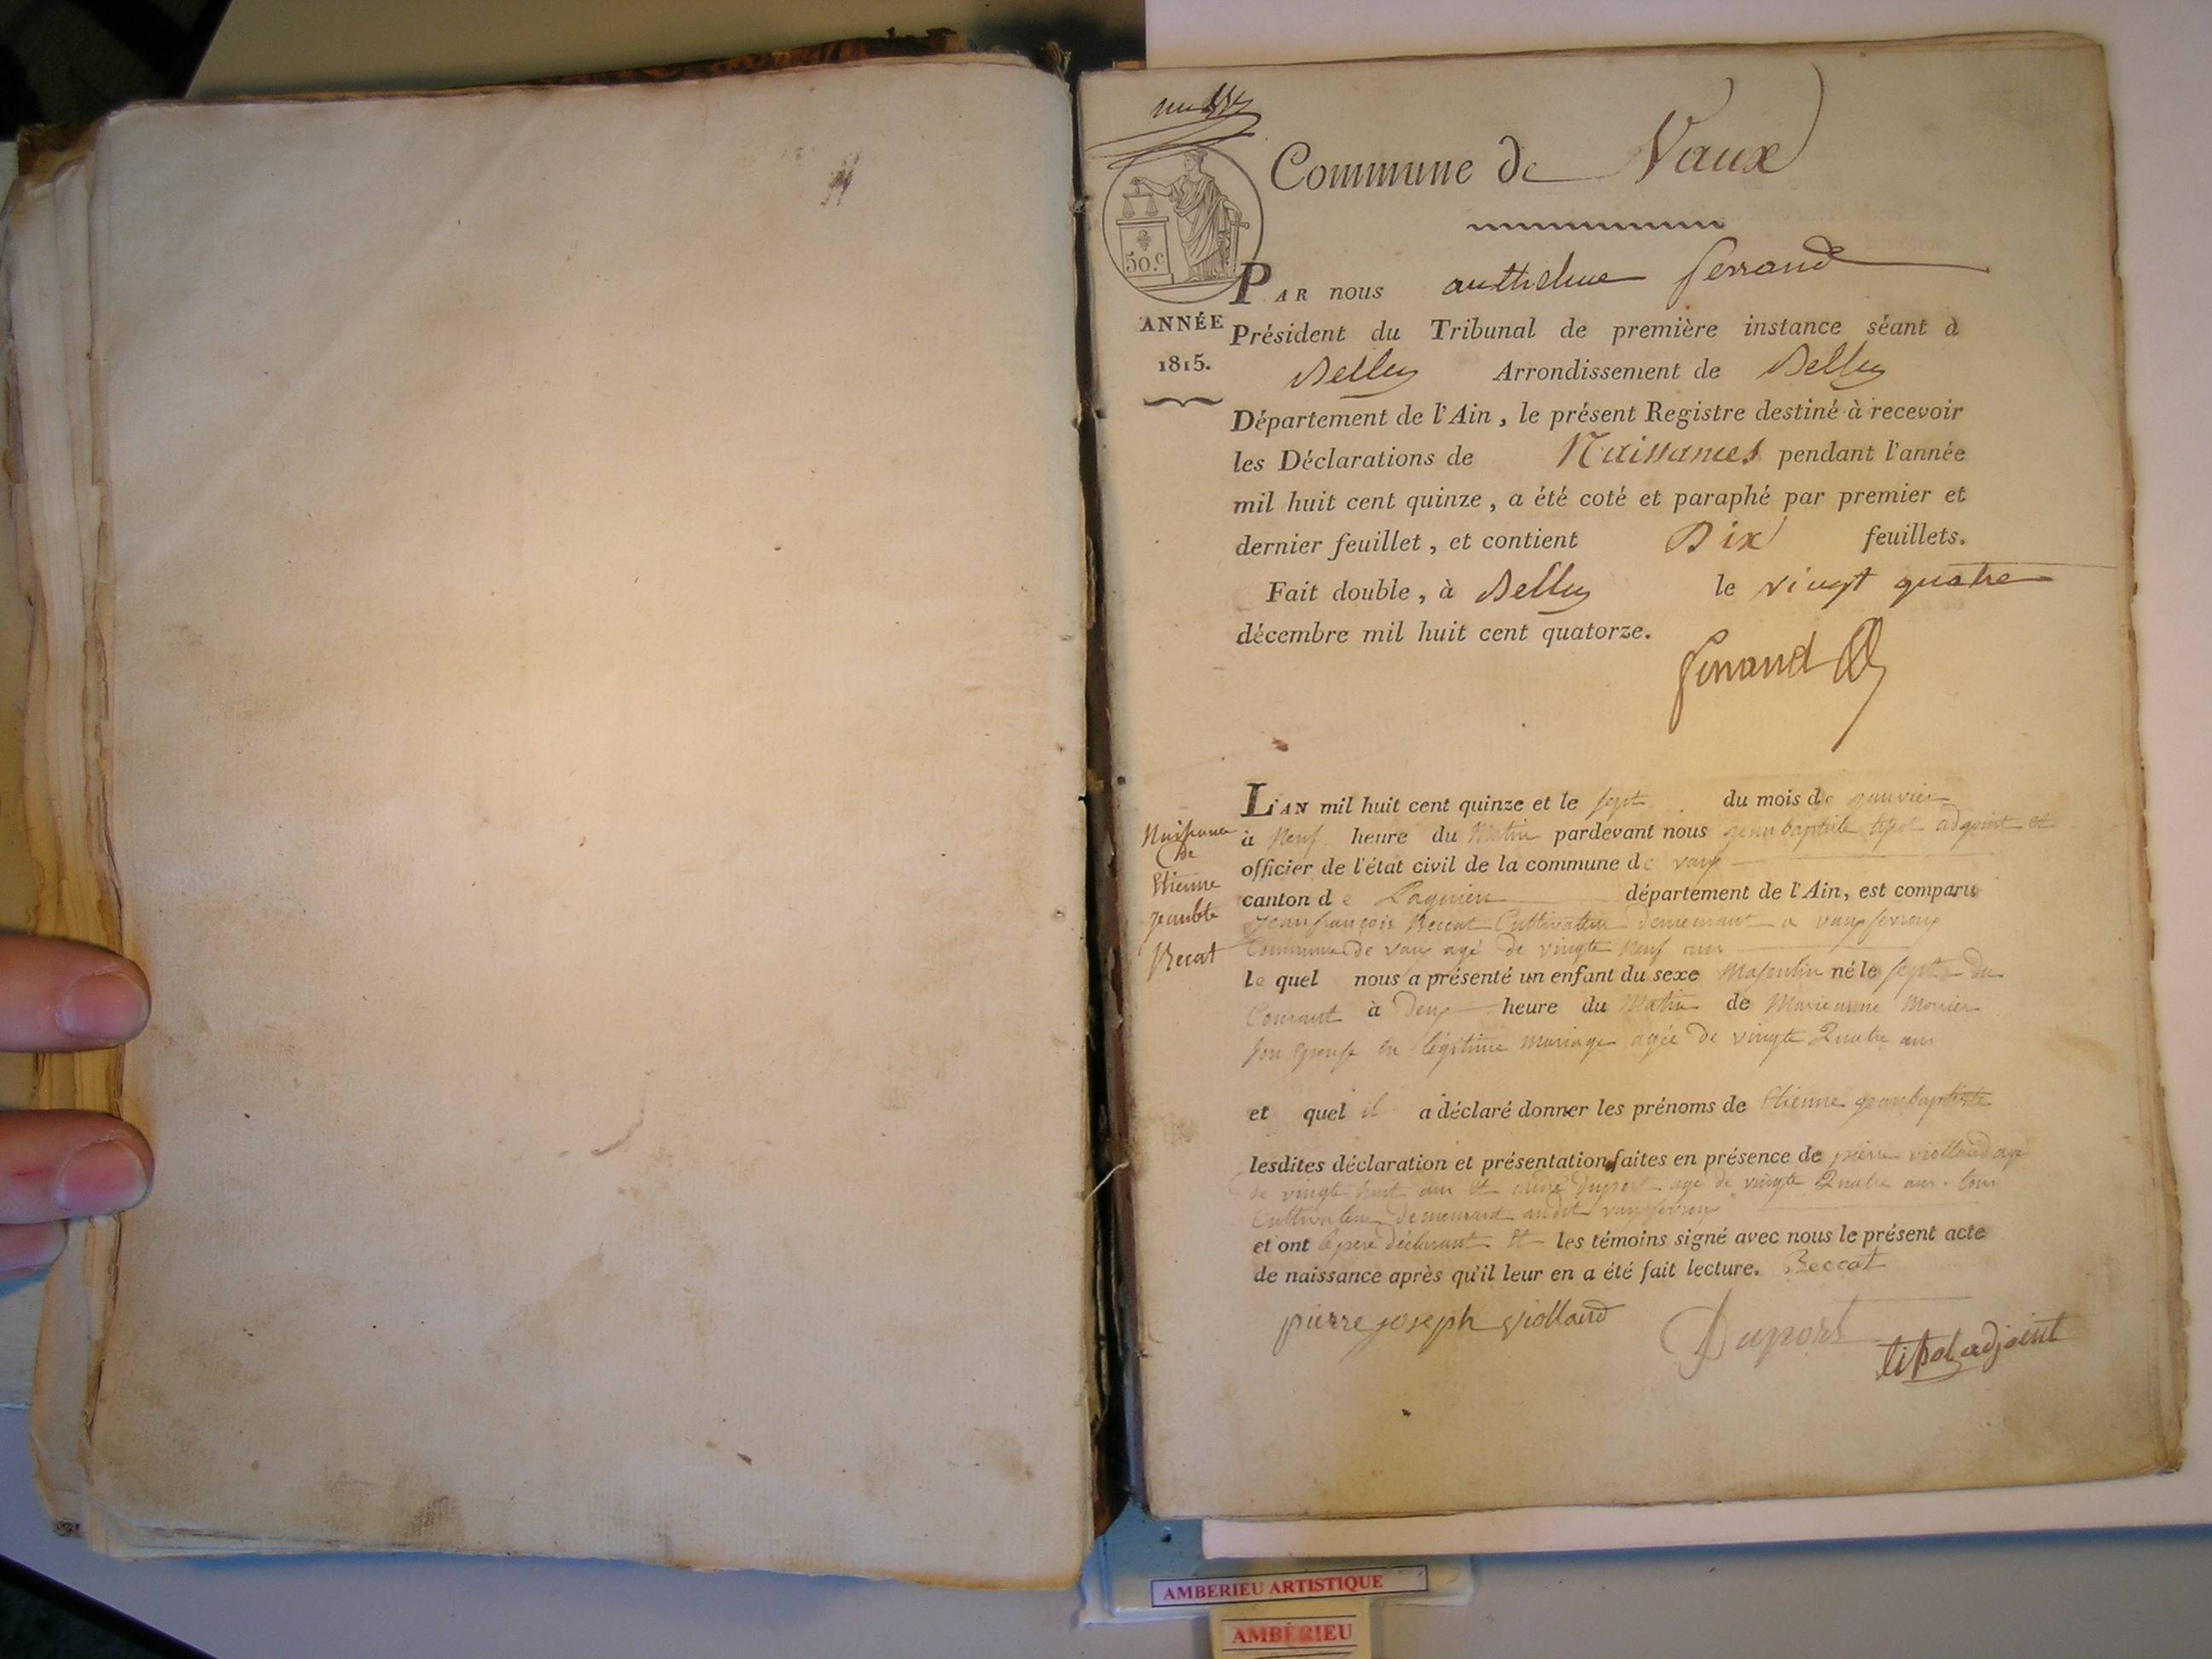 Commune de Vaux
50.c
PAR nous anthelme ferrand
ANNÉE
1815.
Président du Tribunal de première instance séant à
Belley Arrondissement de Belley
Département de l'Ain, le présent Registre destiné à recevoir
les Déclarations de Naissances pendant l'année
mil huit cent quinze, a été coté et paraphé par premier et
dernier feuillet, et contient Dix feuillets.
Fait double, à Belley le vingt quatre
décembre mil huit cent quatorze.
ferrand
Naissance
de
Etienne
jeanbte
Becat
L'AN mil huit cent quinze et le sept du mois de janvier
à Neuf heure du Matin pardevant nous jean baptiste tipol adjoint et
officier de l'état civil de la commune de vaux
canton de Lagnieu département de l'Ain, est comparu
jean françois Beccat Cultivateur demeurant a vaux fevroux
Commune de vaux agé de vingte Neuf ans
le quel nous a présenté un enfant du sexe Masculin né le sept du
Courant à deux heure du Matin de Marieanne Monier
son epouse en légitime mariage agée de vingte Quatre ans
et quel il a déclaré donner les prénoms de Etienne jeanbaptiste
lesdites déclaration et présentation faites en présence de pierre violland agé
de vingte huit ans et andré duport agé de vingte Quatre ans. tous
Cultivateur demeurant audit vaux fevroux
et ont le pere déclarant et les témoins signé avec nous le présent acte
de naissance après qu'il leur en a été fait lecture. Beccat
pierre joseph violland
Duport
tipol adjoint
AMBERIEU ARTISTIQUE
AMBÉRIEU